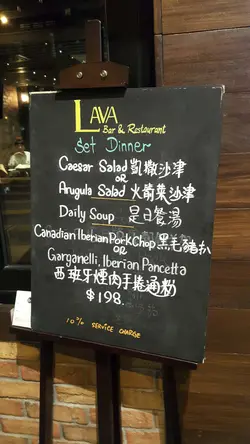 LAVA
Bar & Restaurant
Set Dinner
Caesar Salad 凱撒沙津
OR
Arugula Salad 火箭菜沙津
Daily Soup 是日餐湯
Canadian Iberian Pork Chop 黑毛豬扒
OR
Garganelli, Iberian Pancetta
西班牙煙肉手捲通粉
$198.
10% SERVICE CHARGE